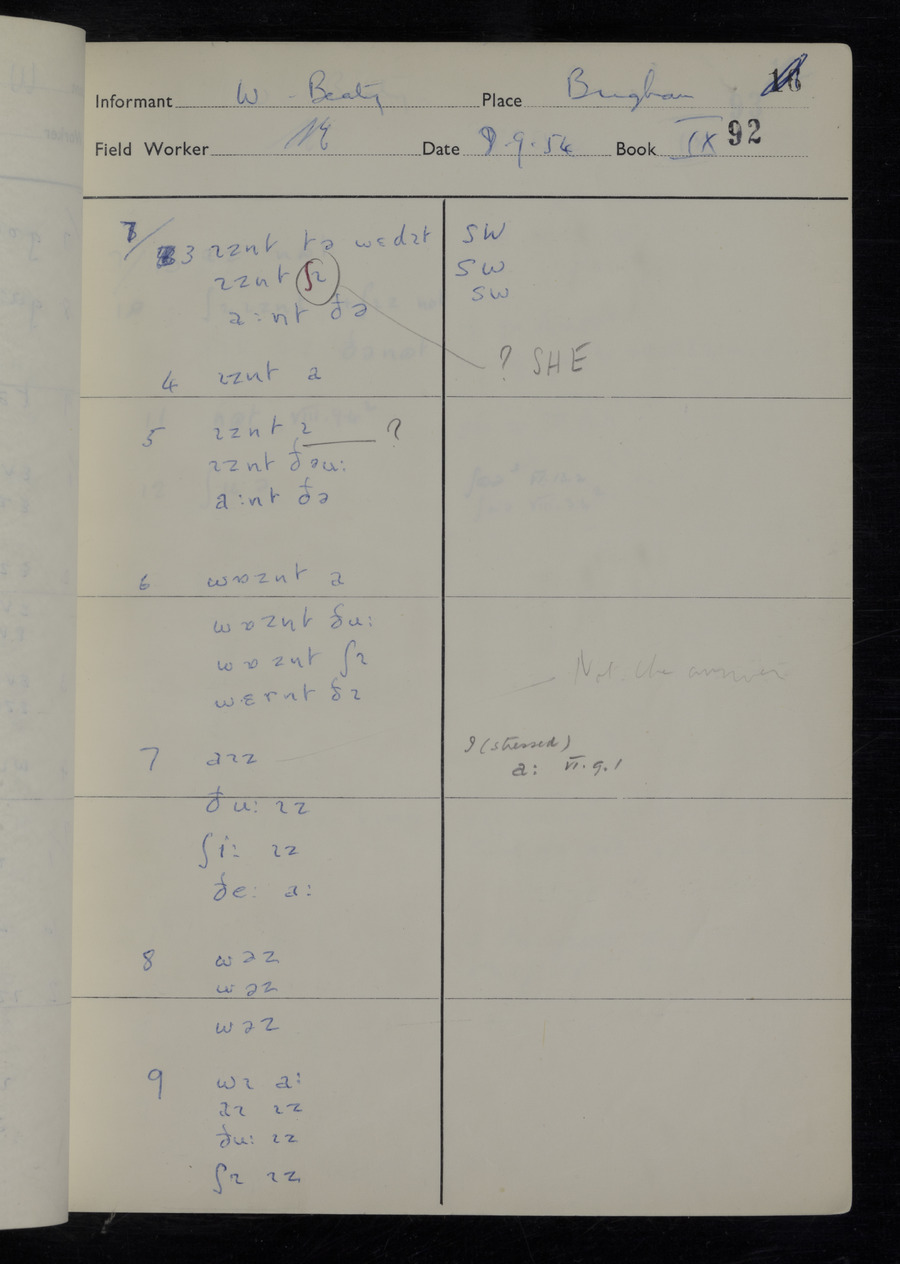 Informant W. Beaty Place Brigham 16
Field Worker Date 8.9.54 Book IX 92
7/3 ɪznt tə wɛdɪt SW
ɪznt ʃɪ SW
a:nt ðə SW
? SHE
4 ɪznt a
5 ɪznt ɪ ?
ɪznt ðəu:
a:nt ðə
6 wɒznt a
wɒznt ðu:
wɒznt ʃɪ
Not the answer
wɛrnt ðɪ
7 aɪz I (stressed)
a: VI.9.1
ðu: ɪz
ʃi: ɪz
ðe: a:
8 wəz
wəz
wəz
9 wɪ a:
aɪ ɪz
ðu: ɪz
ʃɪ ɪz